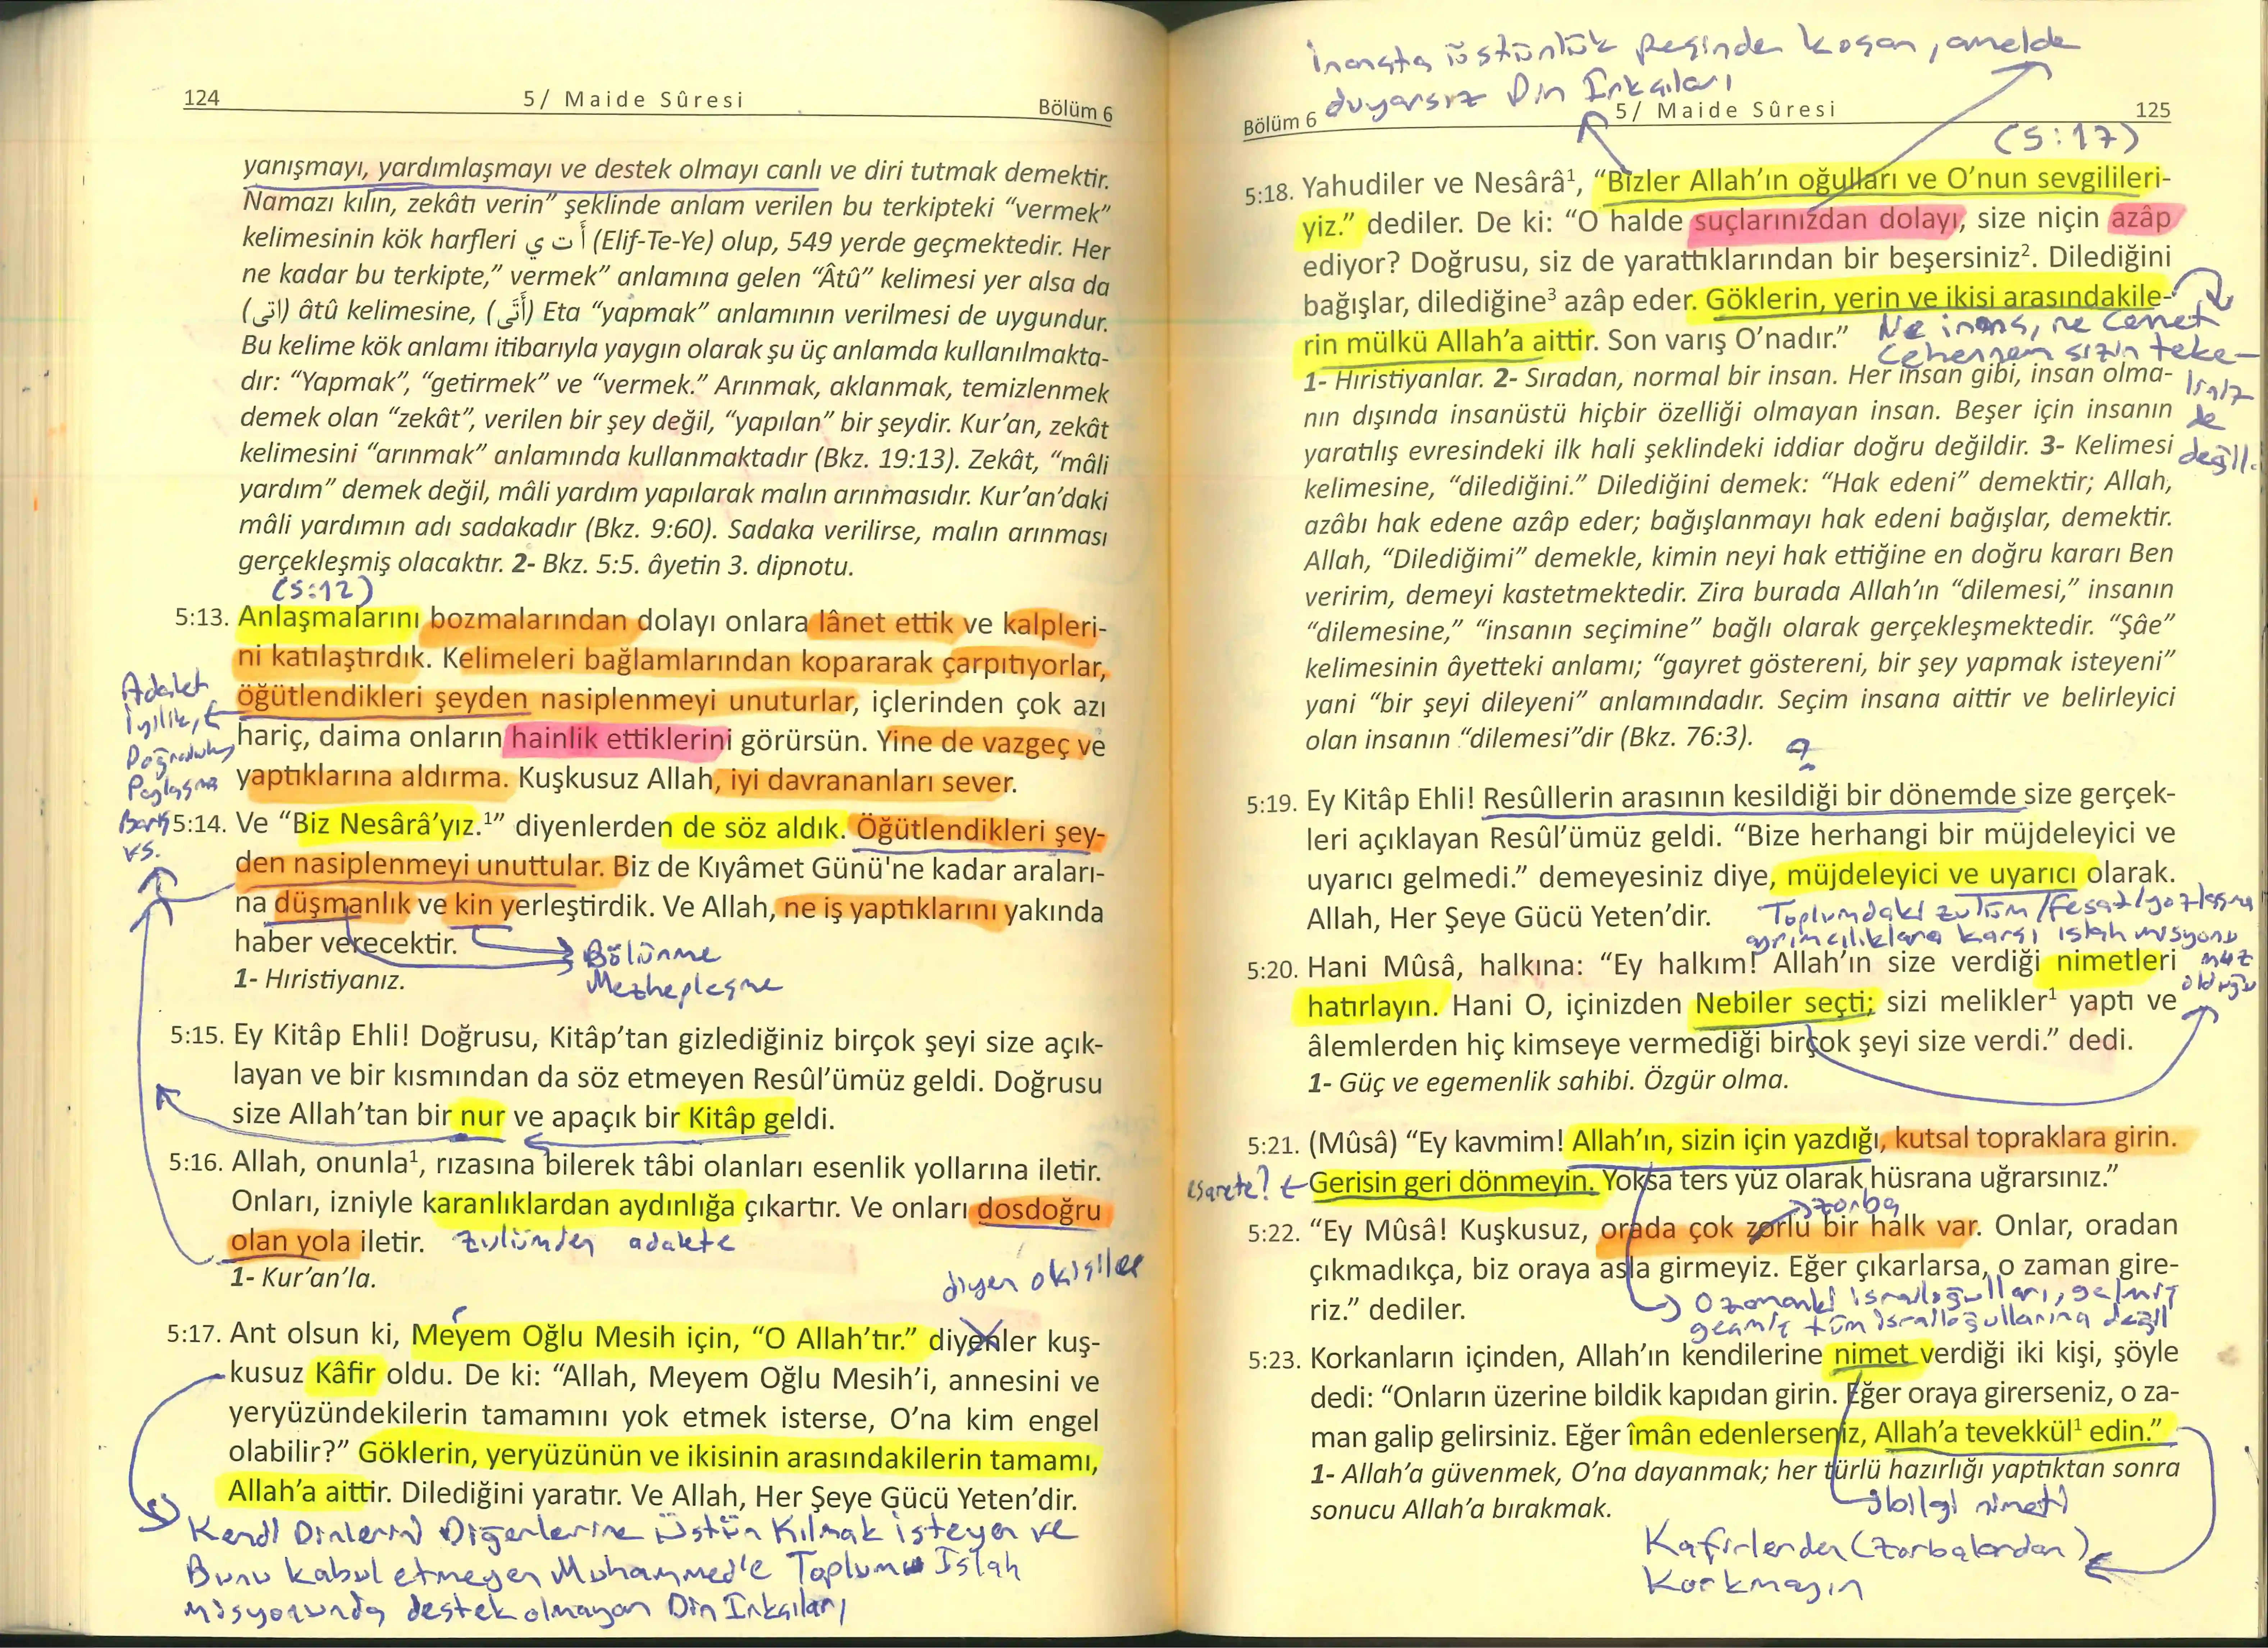 124
5/ Maide Sûresi
Bölüm 6
yanışmayı, yardımlaşmayı ve destek olmayı canlı ve diri tutmak demektir.
Namazı kılın, zekâtı verin” şeklinde anlam verilen bu terkipteki “vermek”
kelimesinin kök harfleri أ ت ي (Elif-Te-Ye) olup, 549 yerde geçmektedir. Her
ne kadar bu terkipte,” vermek” anlamına gelen “Âtû” kelimesi yer alsa da
(اتى) âtû kelimesine, (أتى) Eta “yapmak” anlamının verilmesi de uygundur.
Bu kelime kök anlamı itibarıyla yaygın olarak şu üç anlamda kullanılmakta-
dır: “Yapmak”, “getirmek” ve “vermek.” Arınmak, aklanmak, temizlenmek
demek olan “zekât”, verilen bir şey değil, “yapılan” bir şeydir. Kur’an, zekât
kelimesini “arınmak” anlamında kullanmaktadır (Bkz. 19:13). Zekât, “mâli
yardım” demek değil, mâli yardım yapılarak malın arınmasıdır. Kur’an’daki
mâli yardımın adı sadakadır (Bkz. 9:60). Sadaka verilirse, malın arınması
gerçekleşmiş olacaktır. 2- Bkz. 5:5. âyetin 3. dipnotu.
(5:12)
5:13. Anlaşmalarını bozmalarından dolayı onlara lânet ettik ve kalpleri-
ni katılaştırdık. Kelimeleri bağlamlarından kopararak çarpıtıyorlar,
öğütlendikleri şeyden nasiplenmeyi unuturlar, içlerinden çok azı
hariç, daima onların hainlik ettiklerini görürsün. Yine de vazgeç ve
yaptıklarına aldırma. Kuşkusuz Allah, iyi davrananları sever.
Adalet
iyilik,
Doğruluk,
Paylaşma
Barış
vs.
5:14. Ve “Biz Nesârâ’yız.¹” diyenlerden de söz aldık. Öğütlendikleri şey-
den nasiplenmeyi unuttular. Biz de Kıyâmet Günü'ne kadar araları-
na düşmanlık ve kin yerleştirdik. Ve Allah, ne iş yaptıklarını yakında
haber verecektir.
Bölünme
Mezhepleşme
1- Hıristiyanız.
5:15. Ey Kitâp Ehli! Doğrusu, Kitâp’tan gizlediğiniz birçok şeyi size açık-
layan ve bir kısmından da söz etmeyen Resûl’ümüz geldi. Doğrusu
size Allah’tan bir nur ve apaçık bir Kitâp geldi.
5:16. Allah, onunla¹, rızasına bilerek tâbi olanları esenlik yollarına iletir.
Onları, izniyle karanlıklardan aydınlığa çıkartır. Ve onları dosdoğru
olan yola iletir. zulümden adalete
1- Kur’an’la.
diyen o kişiler
5:17. Ant olsun ki, Meyem Oğlu Mesih için, “O Allah’tır.” diyenler kuş-
kusuz Kâfir oldu. De ki: “Allah, Meyem Oğlu Mesih’i, annesini ve
yeryüzündekilerin tamamını yok etmek isterse, O’na kim engel
olabilir?” Göklerin, yeryüzünün ve ikisinin arasındakilerin tamamı,
Allah’a aittir. Dilediğini yaratır. Ve Allah, Her Şeye Gücü Yeten’dir.
Kendi Dinlerini Diğerlerine Üstün Kılmak isteyen ve
Bunu kabul etmeyen Muhammed'e Toplumu Islah
misyonunda destek olmayan Din Inkçıları
İnançta üstünlük peşinden koşan, amelde
duyarsız Din Inkçıları
Bölüm 6
5/ Maide Sûresi
125
(5:17)
5:18. Yahudiler ve Nesârâ¹, “Bizler Allah’ın oğulları ve O’nun sevgilileri-
yiz.” dediler. De ki: “O halde suçlarınızdan dolayı, size niçin azâp
ediyor? Doğrusu, siz de yarattıklarından bir beşersiniz². Dilediğini
bağışlar, dilediğine³ azâp eder. Göklerin, yerin ve ikisi arasındakile-
rin mülkü Allah’a aittir. Son varış O’nadır.”
Ne inanç, ne Cennet
Cehennem sizin teke-
linizde
değil.
1- Hıristiyanlar. 2- Sıradan, normal bir insan. Her insan gibi, insan olma-
nın dışında insanüstü hiçbir özelliği olmayan insan. Beşer için insanın
yaratılış evresindeki ilk hali şeklindeki iddiar doğru değildir. 3- Kelimesi
kelimesine, “dilediğini.” Dilediğini demek: “Hak edeni” demektir; Allah,
azâbı hak edene azâp eder; bağışlanmayı hak edeni bağışlar, demektir.
Allah, “Dilediğimi” demekle, kimin neyi hak ettiğine en doğru kararı Ben
veririm, demeyi kastetmektedir. Zira burada Allah’ın “dilemesi,” insanın
“dilemesine,” “insanın seçimine” bağlı olarak gerçekleşmektedir. “Şâe”
kelimesinin âyetteki anlamı; “gayret göstereni, bir şey yapmak isteyeni”
yani “bir şeyi dileyeni” anlamındadır. Seçim insana aittir ve belirleyici
olan insanın “dilemesi”dir (Bkz. 76:3).
?
5:19. Ey Kitâp Ehli! Resûllerin arasının kesildiği bir dönemde size gerçek-
leri açıklayan Resûl’ümüz geldi. “Bize herhangi bir müjdeleyici ve
uyarıcı gelmedi.” demeyesiniz diye, müjdeleyici ve uyarıcı olarak.
Allah, Her Şeye Gücü Yeten’dir.
Toplumdaki zulüm/fesat/yozlaşma
ayrımcılıklara karşı ıslah misyonu
muz
olduğu
5:20. Hani Mûsâ, halkına: “Ey halkım! Allah’ın size verdiği nimetleri
hatırlayın. Hani O, içinizden Nebiler seçti; sizi melikler¹ yaptı ve
âlemlerden hiç kimseye vermediği birçok şeyi size verdi.” dedi.
1- Güç ve egemenlik sahibi. Özgür olma.
5:21. (Mûsâ) “Ey kavmim! Allah’ın, sizin için yazdığı, kutsal topraklara girin.
esarete?
Gerisin geri dönmeyin. Yoksa ters yüz olarak hüsrana uğrarsınız.”
zorba
5:22. “Ey Mûsâ! Kuşkusuz, orada çok zorlu bir halk var. Onlar, oradan
çıkmadıkça, biz oraya asla girmeyiz. Eğer çıkarlarsa, o zaman gire-
riz.” dediler.
O zamanki israiloğulları, gelmiş
geçmiş tüm israiloğullarına değil
5:23. Korkanların içinden, Allah’ın kendilerine nimet verdiği iki kişi, şöyle
dedi: “Onların üzerine bildik kapıdan girin. Eğer oraya girerseniz, o za-
man galip gelirsiniz. Eğer îmân edenlerseniz, Allah’a tevekkül¹ edin.”
1- Allah’a güvenmek, O’na dayanmak; her türlü hazırlığı yaptıktan sonra
sonucu Allah’a bırakmak.
bilgi nimeti
Kafirlerden (zorbalardan)
Korkmayın